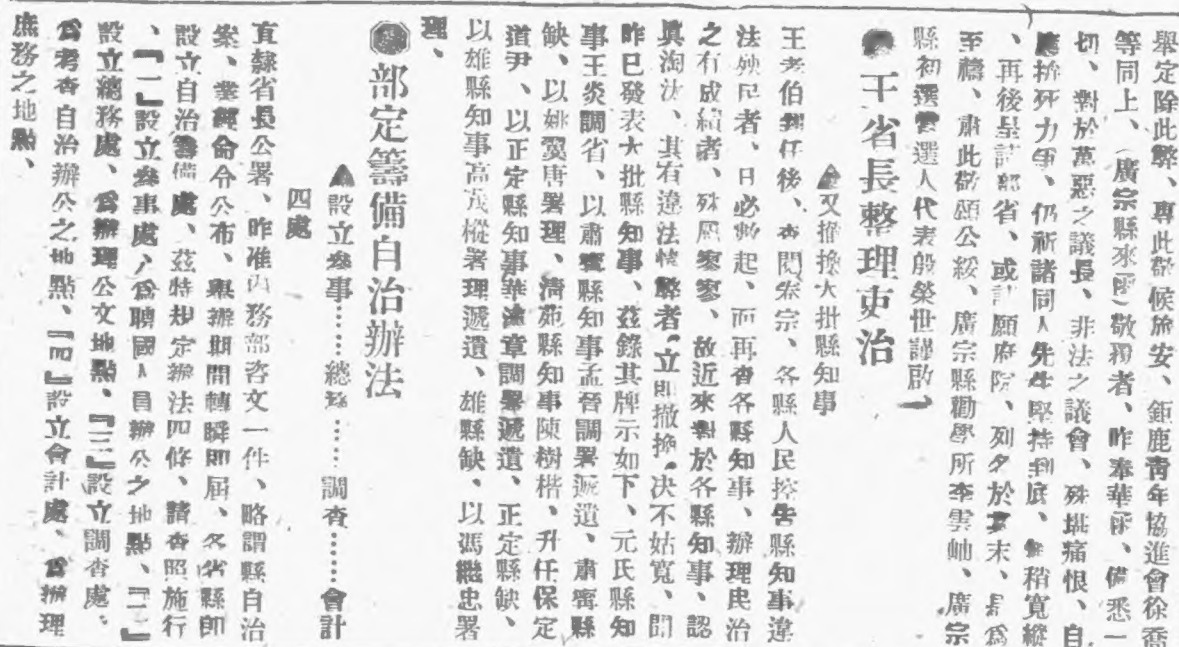 舉定除此弊、專此敬候旅安、鉅鹿靑年協進會徐喬
等同上、（廣宗縣來函）敬覆者、昨奉華函、備悉一
切、對於萬惡之議長、非法之議會、殊堪痛恨、自
應拚死力爭、仍祈諸同人先生堅持到底、無稍寬縱
、再後呈請部省、或請願府院、列名於末、是爲
至禱、肅此敬頌公綏、廣宗縣勸學所李雲岫、廣宗
縣初選當選人代表殷榮世謹啟）
●王省長整理吏治
▲又撤換大批縣知事
王孝伯到任後、查閱卷宗、各縣人民控告縣知事違
法殃民者、日必數起、而再查各縣知事、辦理民治
之有成績者、殊屬寥寥、故近來對於各縣知事、認
眞淘汰、其有違法情弊者、立即撤換、决不姑寬、聞
昨已發表大批縣知事、茲錄其牌示如下、元氏縣知
事王炎調省、以肅寗縣知事孟晉調署遞遺、肅寗縣
缺、以姚翼唐署理、淸苑縣知事陳樹楷、升任保定
道尹、以正定縣知事華章調署遞遺、正定縣缺、
以雄縣知事高茂樅署理遞遺、雄縣缺、以馮繼忠署
理、
●部定籌備自治辦法
▲設立參事……總務……調査……會計
四處
直隸省長公署、昨准內務部咨文一件、略謂縣自治
案、業經命令公布、舉辦期間轉瞬即屆、各省縣即
設立自治籌備處、茲特規定辦法四條、請查照施行
、『一』設立參事處、爲聘國人員辦公之地點、『二』
設立總務處、爲辦理公文地點、『三』設立調査處、
爲考查自治辦公之地點、『四』設立會計處、爲辦理
庶務之地點、